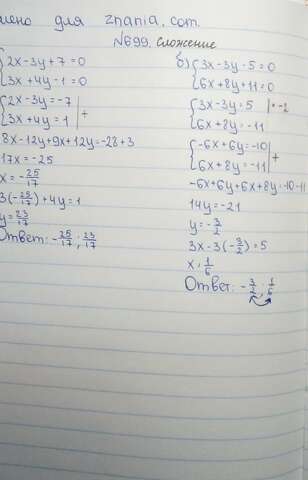 лено для znania.com.
№699. Сложение
{2x-3y+7=0
{3x+4y-1=0
{2x-3y=-7
{3x+4y=1 |+
8x-12y+9x+12y=-28+3
17x=-25
x=-25/17
3(-25/17)+4y=1
y=23/17
Ответ: -25/17; 23/17
б) {3x-3y-5=0
{6x+8y+11=0
{3x-3y=5 |·-2
{6x+8y=-11
{-6x+6y=-10
{6x+8y=-11 |+
-6x+6y+6x+8y=-10-11
14y=-21
y=-3/2
3x-3(-3/2)=5
x=1/6
Ответ: -3/2; 1/6